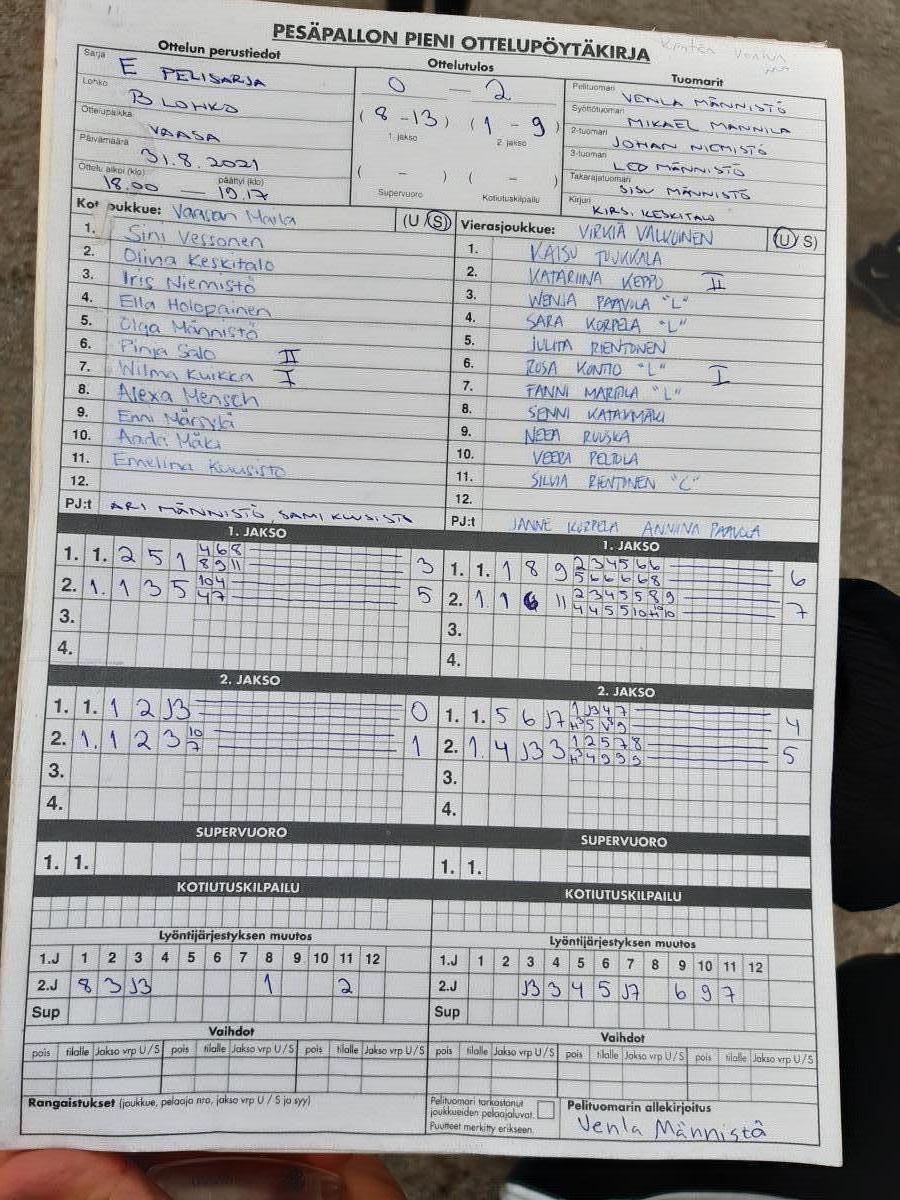 PESÄPALLON PIENI OTTELUPÖYTÄKIRJA
Ottelun perustiedot
Sarja E PELISARJA
Lohko B LOHKO
Ottelupaikka VAASA
Päivämäärä 31.8.2021
Ottelu alkoi (klo) 18.00 — päättyi (klo) 19.17
Ottelutulos
0 — 2
(8 - 13) (1 - 9)
1. jakso 2. jakso
( - ) ( - )
Supervuoro Kotiutuskilpailu
Tuomarit
Pelituomari VENLA MÄNNISTÖ
Syöttötuomari MIKAEL MANNILA
2-tuomari JOHAN NIEMISTÖ
3-tuomari LEO MÄNNISTÖ
Takarajatuomari SISU MÄNNISTÖ
Kirjuri KIRSI KESKITALO
Kotijoukkue: Vaasan Maila (U / S)
1. Sini Vessonen
2. Oliva Keskitalo
3. Iris Niemistö
4. Ella Holopainen
5. Olga Männistö
6. Pinja Salo II
7. Wilma Kuikka I
8. Alexa Mensch
9. Enni
10. Mäki
11. Emelina Kuusisto
12.
PJ:t ARI MÄNNISTÖ, SAMI KUUSISTO
Vierasjoukkue: VIRKIÄ VALKOINEN (U / S)
1. KAISU TUUKKALA
2. KATARIINA KEPPO II
3. WENJA PAAVOLA "L"
4. SARA KORPELA "L"
5. JULITA RIENTONEN
6. ROSA KONTTO "L" I
7. FANNI MARTTILA "L"
8. SENNI KATAJAMÄKI
9. NEEA RUUSKA
10. VEERA PELTOLA
11. SILVIA RIENTONEN "C"
12.
PJ:t JANNE KORPELA ANNIINA PAAVOLA
1. JAKSO
1. 1. 2 5 1 4 6 8 3
8 9 11
2. 1. 1 3 5 10 4 5
4 7
3.
4.
1. JAKSO
1. 1. 1 8 9 2 3 4 5 6 6 6
5 6 6 6 6 8
2. 1. 1 6 11 2 3 4 5 5 8 9 7
4 4 5 5 10 11 10
3.
4.
2. JAKSO
1. 1. 1 2 J3 0
2. 1. 1 2 3 10 1
7
3.
4.
2. JAKSO
1. 1. 5 6 J7 1 J3 4 7 4
2. 1. 4 J3 3 1 2 5 7 8 5
3.
4.
SUPERVUORO
1. 1.
SUPERVUORO
1. 1.
KOTIUTUSKILPAILU
KOTIUTUSKILPAILU
Lyöntijärjestyksen muutos
1.J 1 2 3 4 5 6 7 8 9 10 11 12
2.J 8 3 J3 1 2
Sup
Lyöntijärjestyksen muutos
1.J 1 2 3 4 5 6 7 8 9 10 11 12
2.J J3 3 4 5 J7 6 9 7
Sup
Vaihdot
pois tilalle Jakso vrp U / S pois tilalle Jakso vrp U / S pois tilalle Jakso vrp U / S
Vaihdot
pois tilalle Jakso vrp U / S pois tilalle Jakso vrp U / S pois tilalle Jakso vrp U / S
Rangaistukset (joukkue, pelaaja nro, jakso vrp U / S ja syy)
Pelituomari tarkastanut
joukkueiden pelaajaluvat.
Puutteet merkitty erikseen.
Pelituomarin allekirjoitus
Venla Männistö